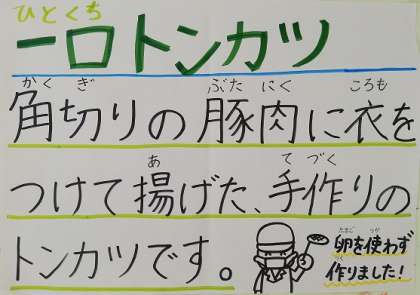 ひとくち
一口トンカツ
かくぎ ぶたにく ころも
角切りの豚肉に衣を
あ てづく
つけて揚げた、手作りの
トンカツです。
たまご つか
卵を使わず
作りました!